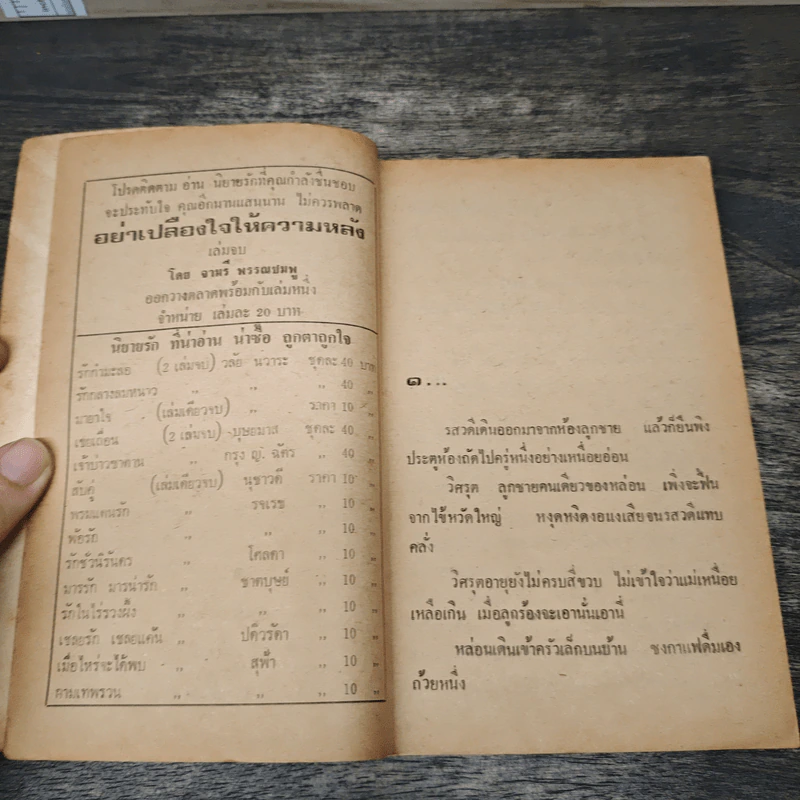 โปรดติดตาม อ่าน นิยายรักที่คุณกำลังชื่นชอบ
จะประทับใจ คุณอีกนานแสนนาน ไม่ควรพลาด
อย่าเปลืองใจให้ความหลัง
เล่มจบ
โดย จามรี พรรณชมพู
ออกวางตลาดพร้อมกับเล่มหนึ่ง
จำหน่าย เล่มละ 20 บาท
นิยายรัก ที่น่าอ่าน น่าซื้อ ถูกตาถูกใจ
รักกำมะลอ (2 เล่มจบ) วลัย นวาระ ชุดละ 40 บาท
รักกลางลมหนาว ,, ,, ,, 40 ,,
มายาใจ (เล่มเดียวจบ) ,, ราคา 10 ,,
เชลยเถื่อน (2 เล่มจบ) บุษยมาส ชุดละ 40 ,,
เจ้าบ่าวซาตาน ,, กรุง ญ. ฉัตร ,, 40 ,,
สับคู่ (เล่มเดียวจบ) นุชาวดี ราคา 10 ,,
พรมแดนรัก ,, รจเรข ,, 10 ,,
พ้อรัก ,, ,, ,, 10 ,,
รักชั่วนิรันดร ,, โสลดา ,, 10 ,,
มารรัก มารน่ารัก ,, ชาตบุษย์ ,, 10 ,,
รักในไร่รวงผึ้ง ,, ,, ,, 10 ,,
เชลยรัก เชลยแค้น ,, ปดิวรัดา ,, 10 ,,
เมื่อไหร่จะได้พบ ,, สุฟ้า ,, 10 ,,
ตามเทพรวน ,, ,, ,, 10 ,,
๑...
รสวดีเดินออกมาจากห้องลูกชาย แล้วก็ยืนพิง
ประตูห้องถัดไปครู่หนึ่งอย่างเหนื่อยอ่อน
วิศรุต ลูกชายคนเดียวของหล่อน เพิ่งจะฟื้น
จากไข้หวัดใหญ่ หงุดหงิดงอแงเสียจนรสวดีแทบ
คลั่ง
วิศรุตอายุยังไม่ครบสี่ขวบ ไม่เข้าใจว่าแม่เหนื่อย
เหลือเกิน เมื่อลูกร้องจะเอานั่นเอานี่
หล่อนเดินเข้าครัวเล็กบนบ้าน ชงกาแฟดื่มเอง
ถ้วยหนึ่ง